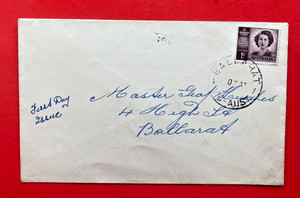 BALLARAT
AUST
First Day
Issue
Master Geof Hughes
4 High St
Ballarat